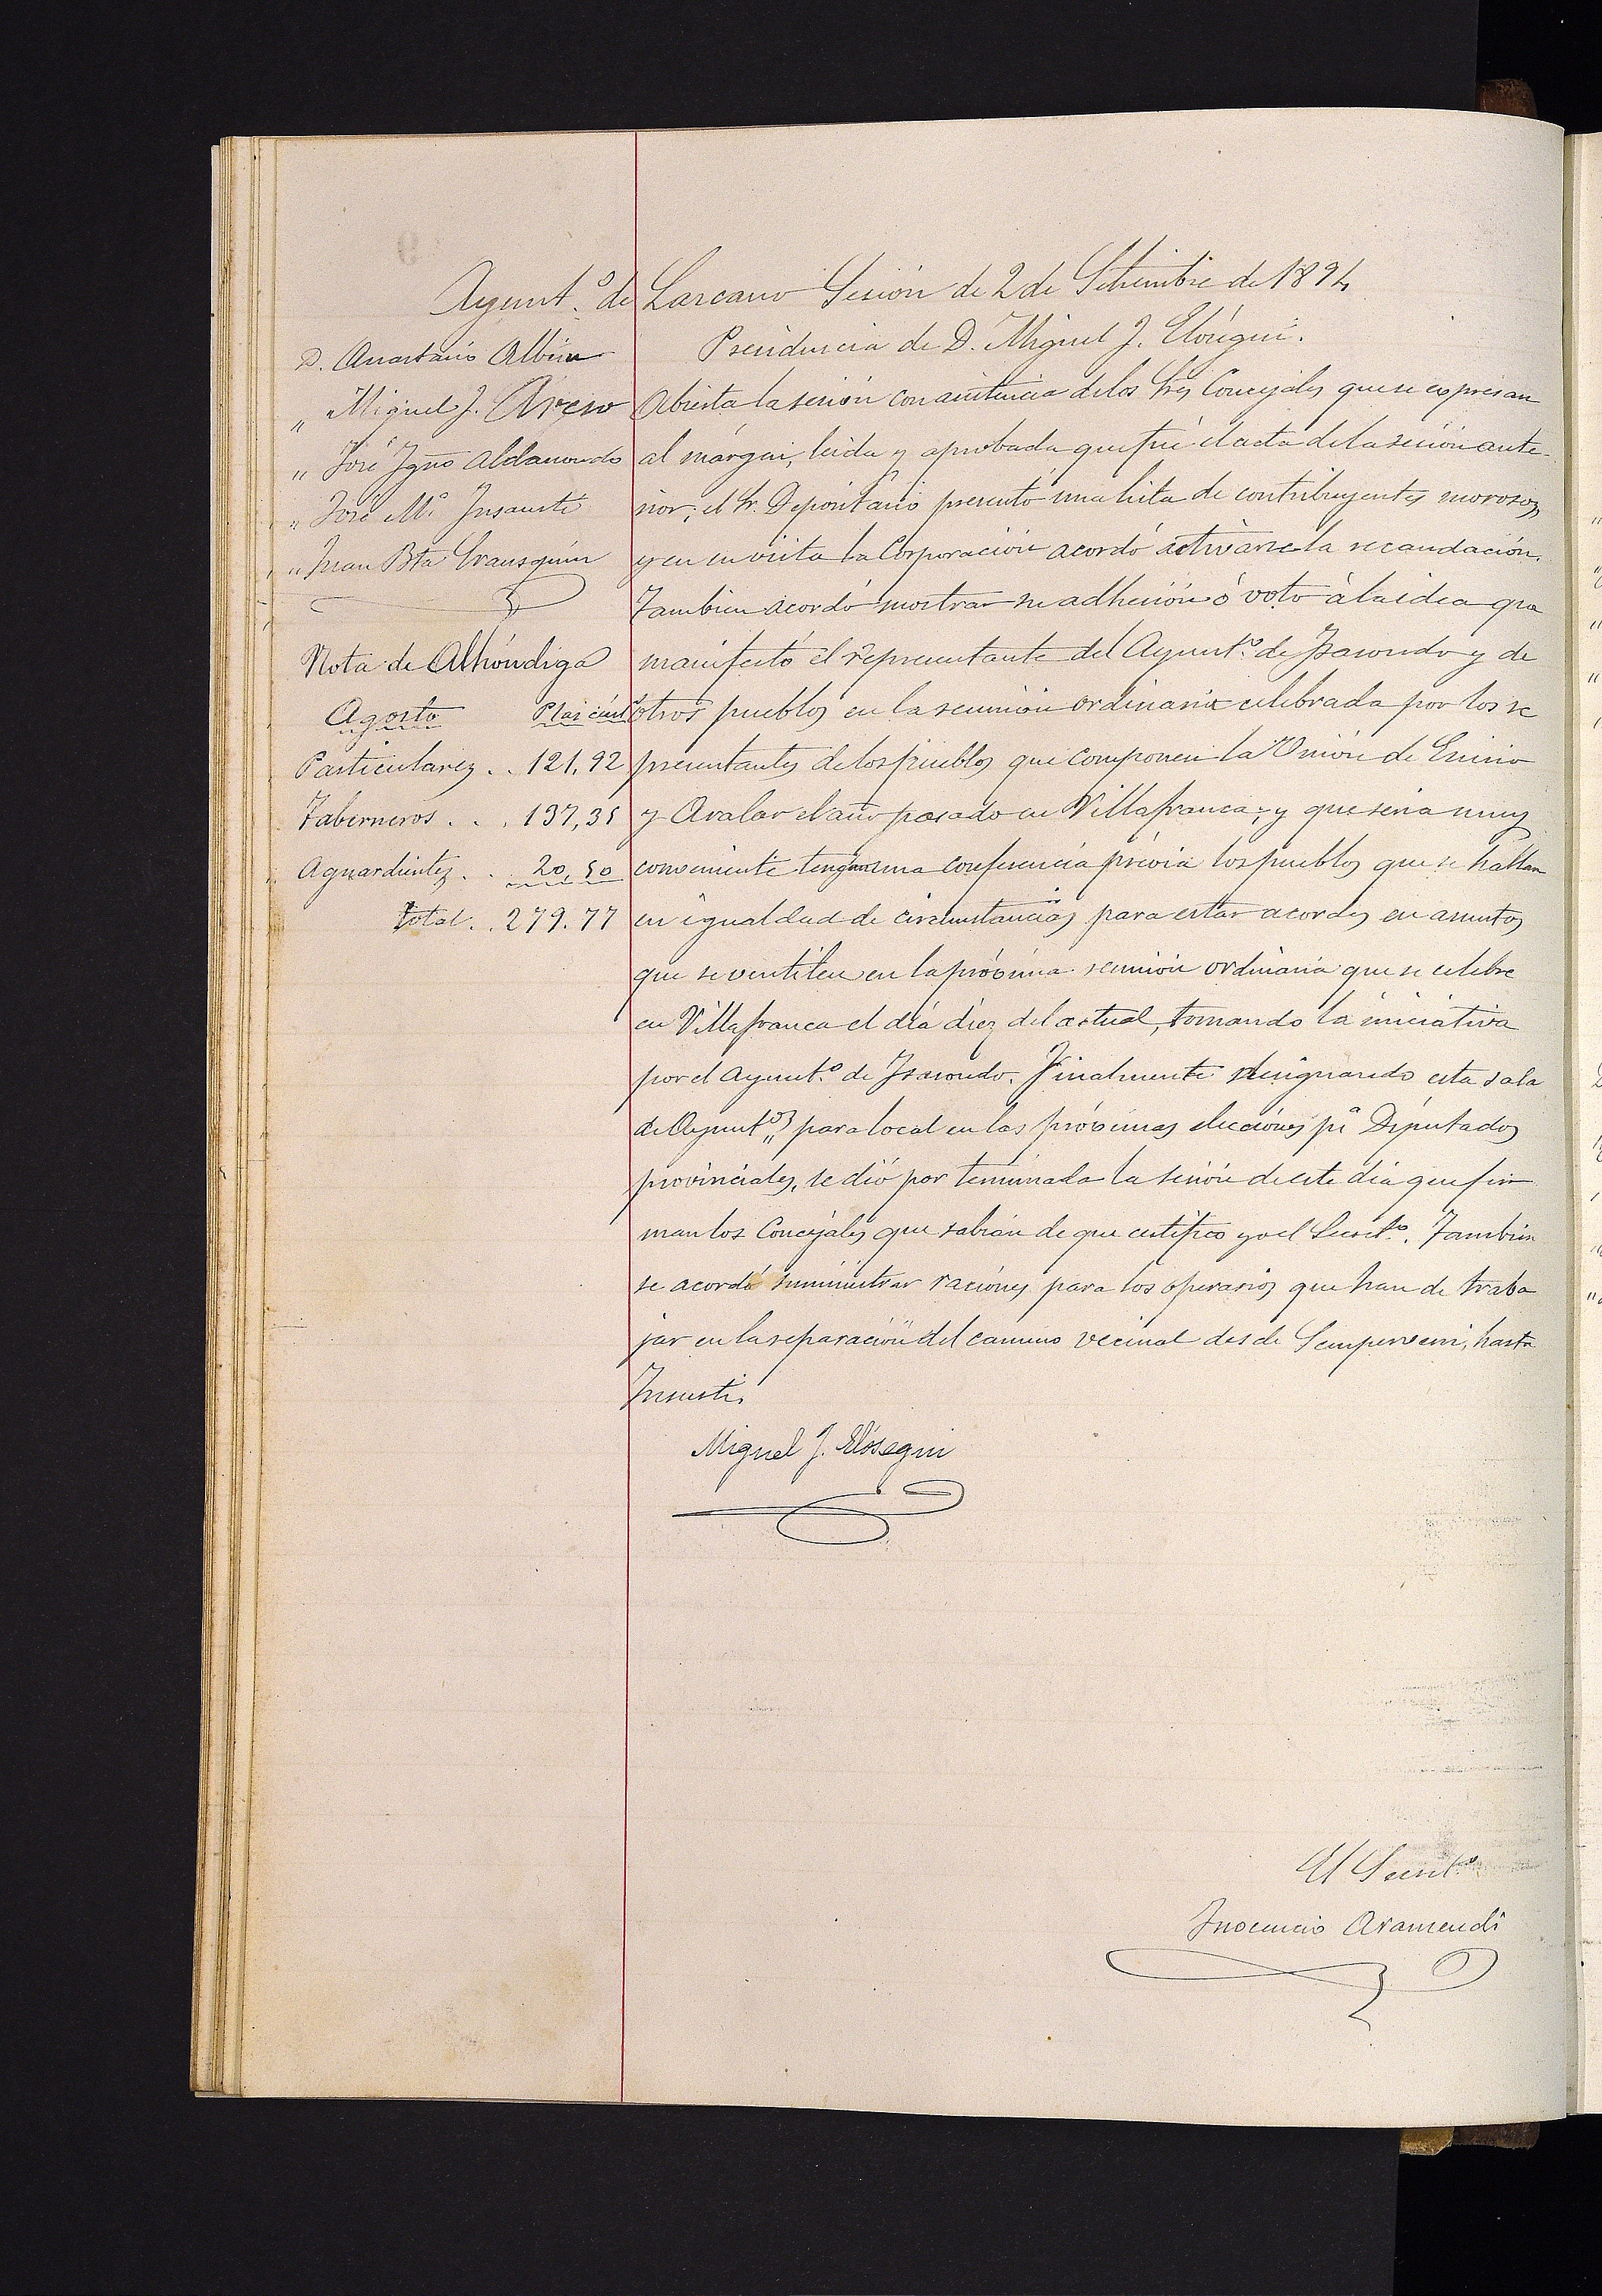 Ayunt.º de Lazcano Sesión de 2 de Setiembre de 1894
Presidencia de D. Miguel J. Elósegui.
D. Anastasio Albisu
" Miguel J. Areso
" José Ygnº Aldanondo
" José Mª Insausti
" Juan Bta Irausquin
Nota de Alhóndiga
Agosto Ptas cént
Particulares . . 121,92
Taberneros . . . 137,35
Aguardientes . . 20,50
Total . . 279.77
Abierta la sesión con asistencia de los Sres Concejales que se expresan
al márgen, leida y aprobada que fué el acta de la sesión ante-
rior; el Sr. Depositario presentó una lista de contribuyentes morosos,
y en su vista la Corporación acordó activarse la recaudación.
Tambien acordó mostrar su adhesión ó voto á la idea que
manifestó el representante del Ayunt.º de Isasondo y de
otros pueblos en la reunión ordinaria celebrada por los re
presentantes de los pueblos que componen la Unión de Enirio
y Aralar el año pasado en Villafranca; y que seria muy
conveniente tengan una conferencia prévia los pueblos que se hallan
en igualdad de circunstancias para estar acordes en asuntos
que se ventilen en la próxima reunión ordinaria que se celebre
en Villafranca el día diez del actual, tomando la iniciativa
por el Ayunt.º de Isasondo. Finalmente designando esta sala
de Ayunt.º para local en las próximas elecciones pª Diputados
provinciales, se dió por terminada la sesión de este dia que fir
man los Concejales que sabian de que certifico yo el Secret.º. Tambien
se acordó suministrar raciones para los operarios que han de traba
jar en la reparación del camino vecinal desde Sempereni, hasta
Insausti.
Miguel J. Elósegui
El Secret.º
Inocencio Aramendi